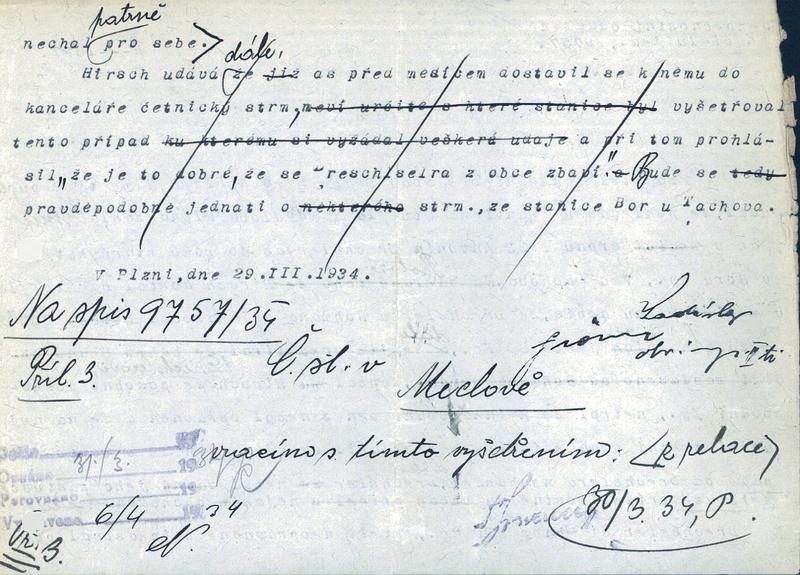 patrně
nechal pro sebe.
dále,
Hirsch udává že již as před měsícem dostavil se k němu do
kanceláře četnický strm, neví určitě s které stanice byl vyšetřoval
tento případ ku kterému si vyžádal veškerá udaje a při tom prohlá-
sil „že je to dobré, že se reschiselra z obce zbaví." a Bude se tedy
pravděpodobně jednati o některého strm., ze stanice Bor u Tachova.
V Plzni, dne 29.III.1934.
Na spis 9757/34
Příl. 3.
Č. st. v
vracíno s tímto vyšetřením: (z relace)
Došlo 31/3. 1934
Opsáno 19
Porovnáno 19
6/4 1934
30/3. 34, P.
3.